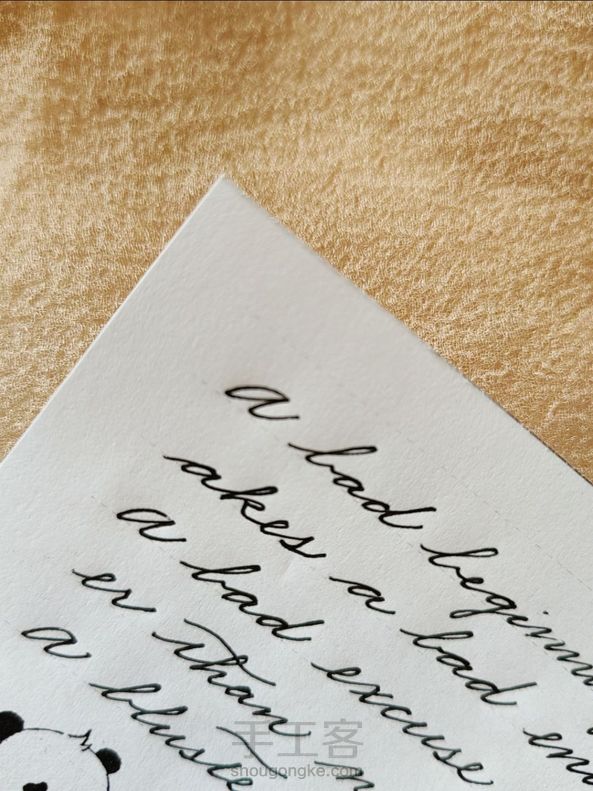 a bad beginn
akes a bad en
a bad excuse
er than n
a bluste
手工客
shougongke.com